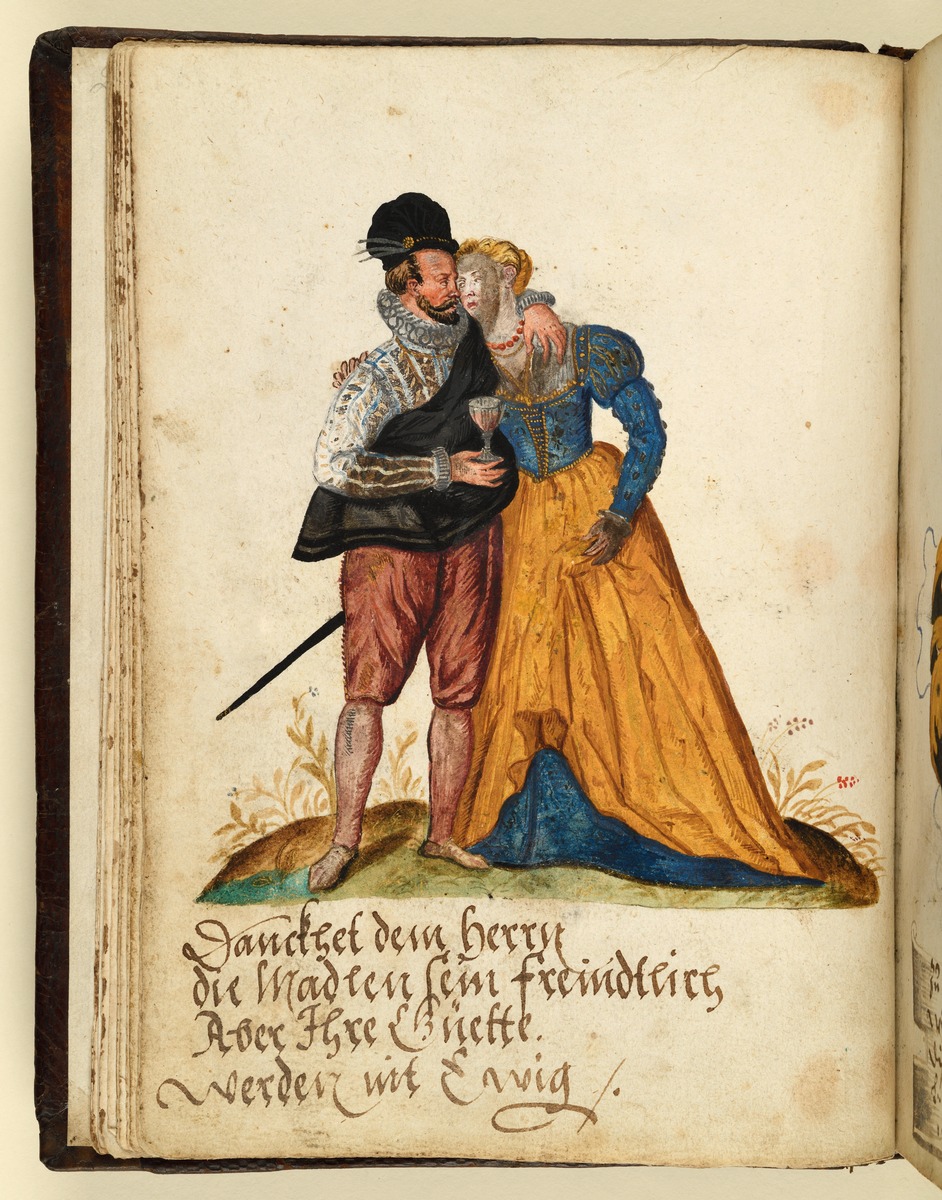 Danckhet dem Herrn
die Madlen sein freindtlich
Aber Ihre Güette.
Werden nit Ewig /.